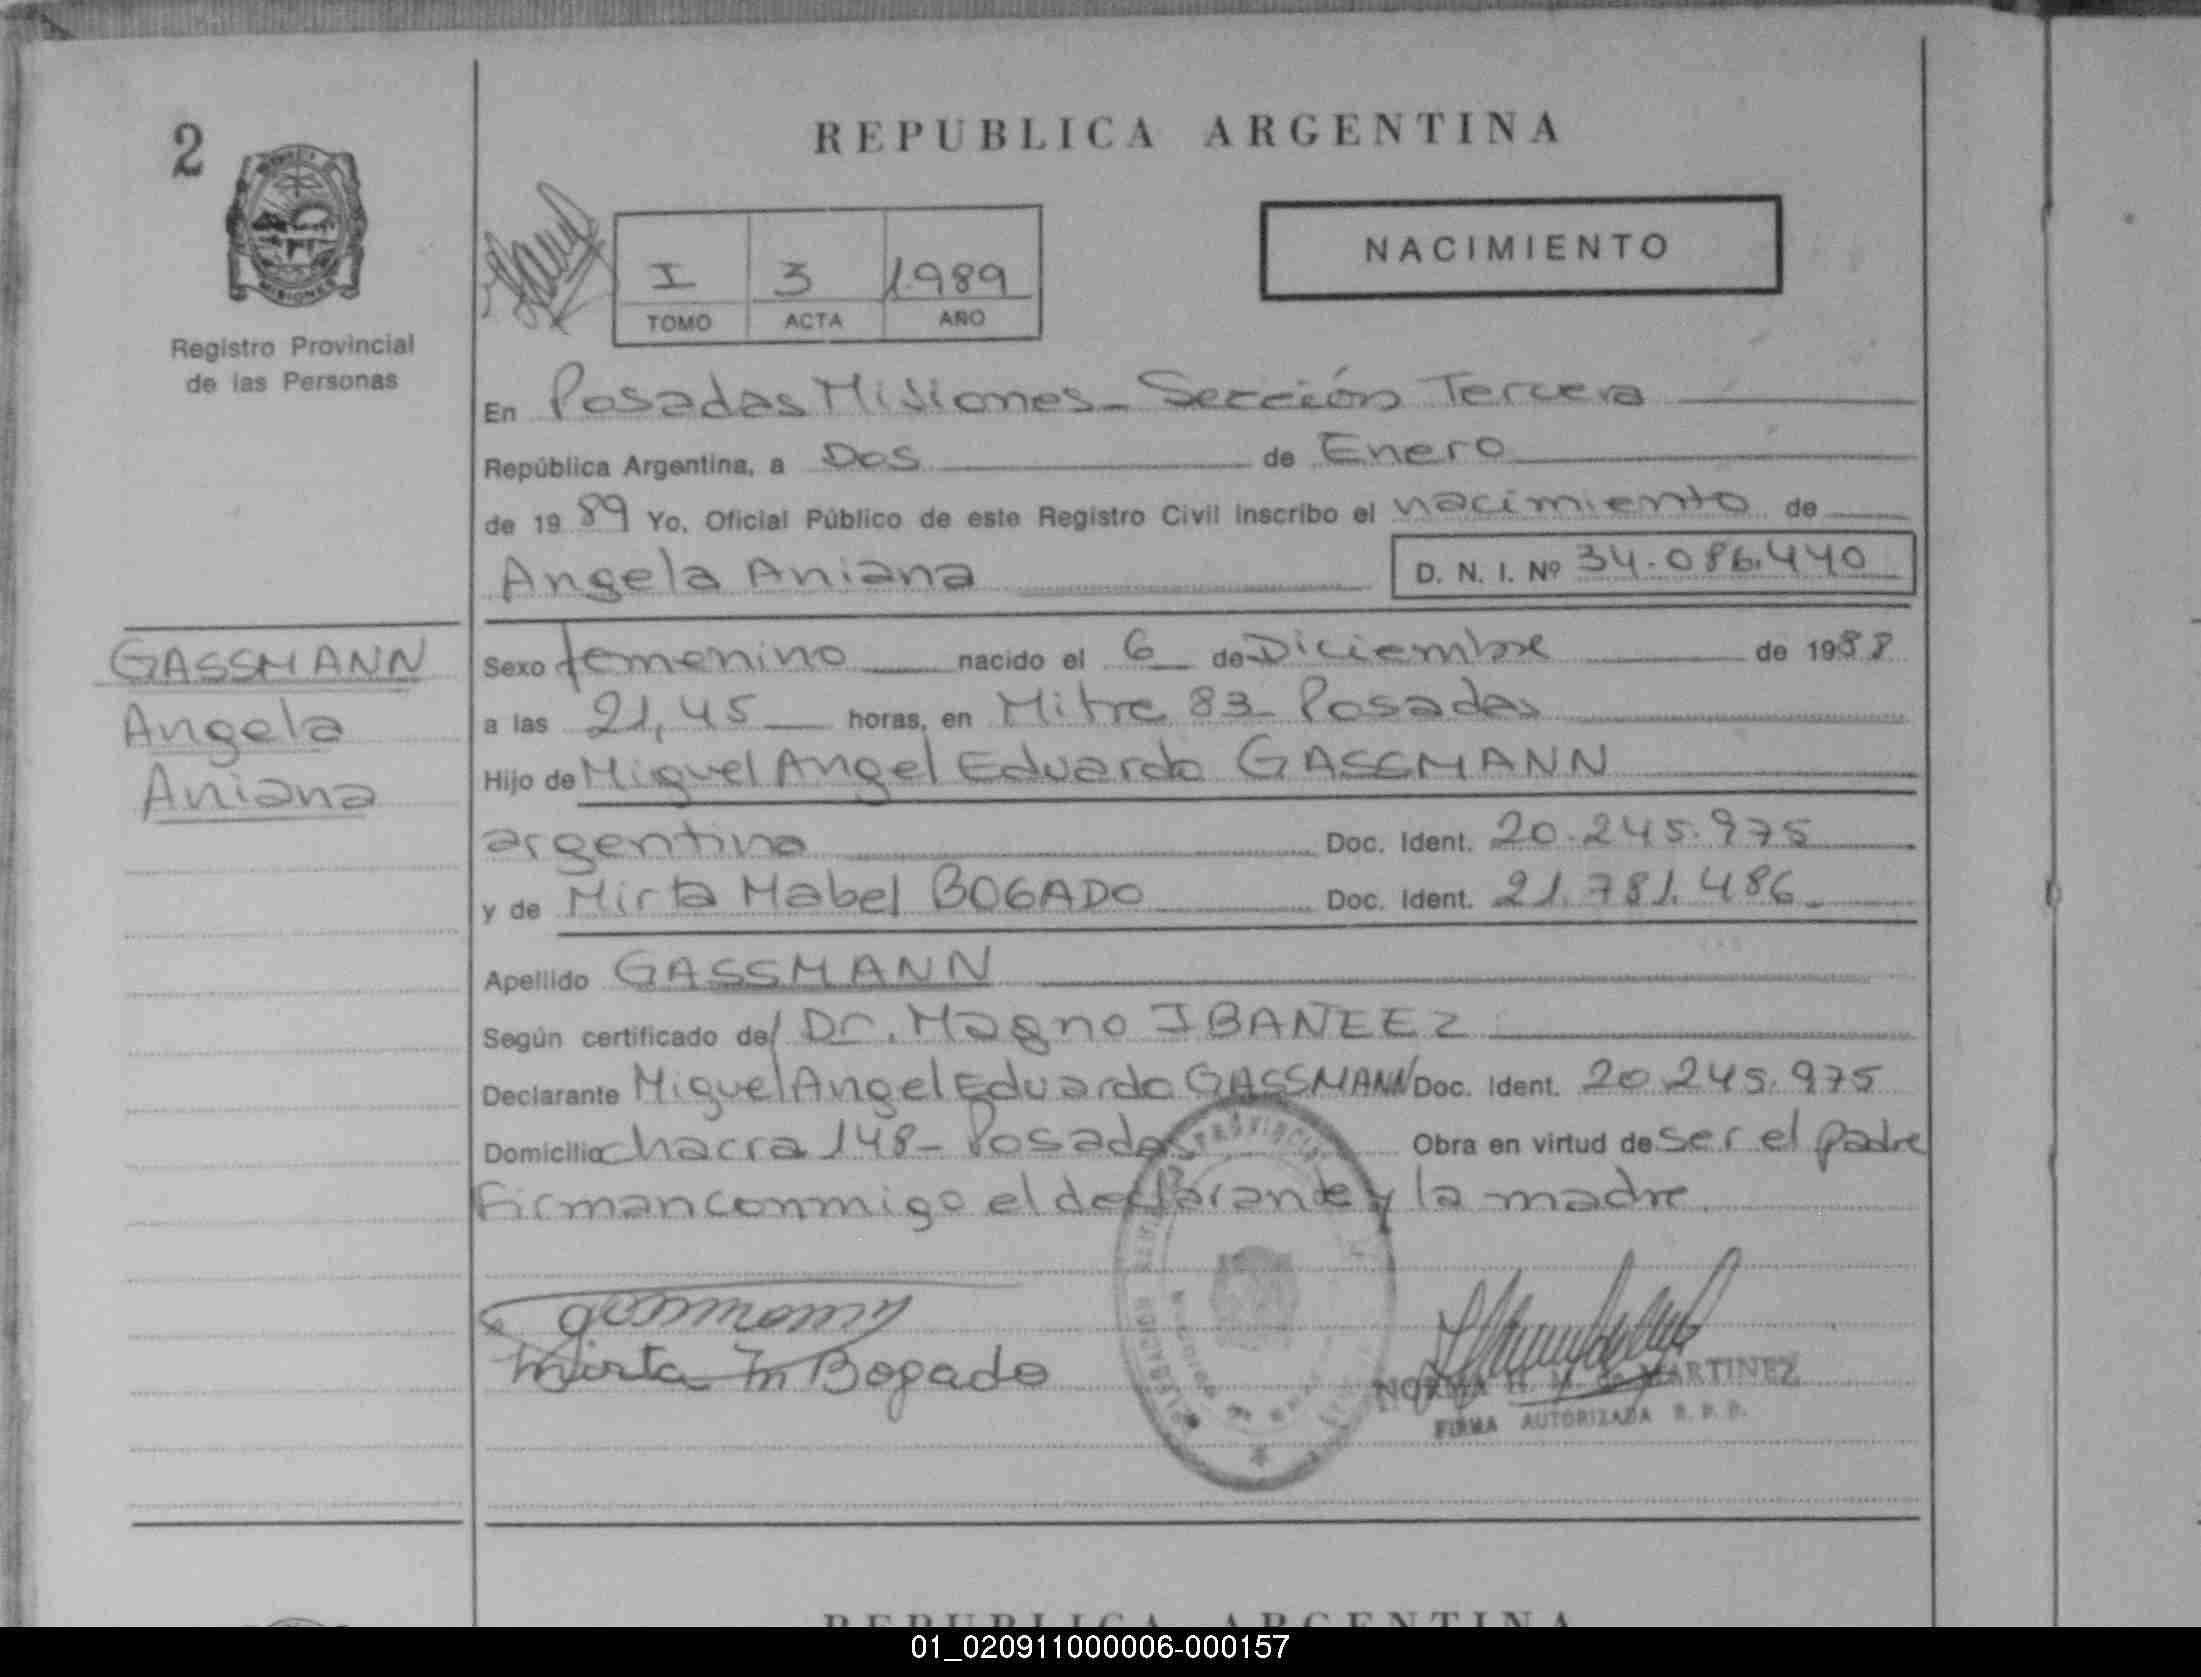 2
REPUBLICA ARGENTINA
MISIONES
Registro Provincial
de las Personas
I 3 1989
TOMO ACTA AÑO
NACIMIENTO
En Posadas Misiones - Sección Tercera
República Argentina, a Dos de Enero
de 1989 Yo, Oficial Público de este Registro Civil inscribo el nacimiento de
Angela Aniana D. N. I. Nº 34.086.440
GASSMANN
Angela
Aniana
Sexo femenino nacido el 6 de Diciembre de 1988
a las 21,45 horas, en Mitre 83 - Posadas
Hijo de Miguel Angel Eduardo GASSMANN
argentina Doc. Ident. 20.245.975
y de Mirta Mabel BOGADO Doc. Ident. 21.781.486
Apellido GASSMANN
Según certificado del Dr. Magno IBANEEZ
Declarante Miguel Angel Eduardo GASSMANN Doc. Ident. 20.245.975
Domicilio chacra 148 - Posadas Obra en virtud de ser el padre
Firman conmigo el declarante y la madre
Mirta M Bogado
NORMA H. M. de MARTINEZ
FIRMA AUTORIZADA R. P. P.
REPUBLICA ARGENTINA
01_020911000006-000157